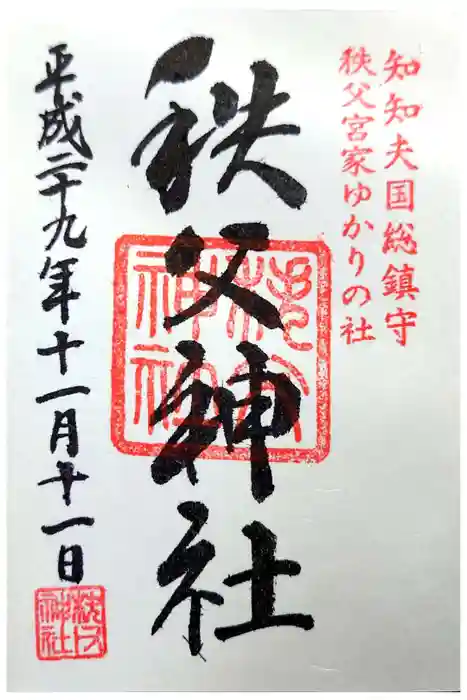 知知夫国総鎮守
秩父宮家ゆかりの社
秩父神社
平成二十九年十一月十一日
秩父神社
秩父神社